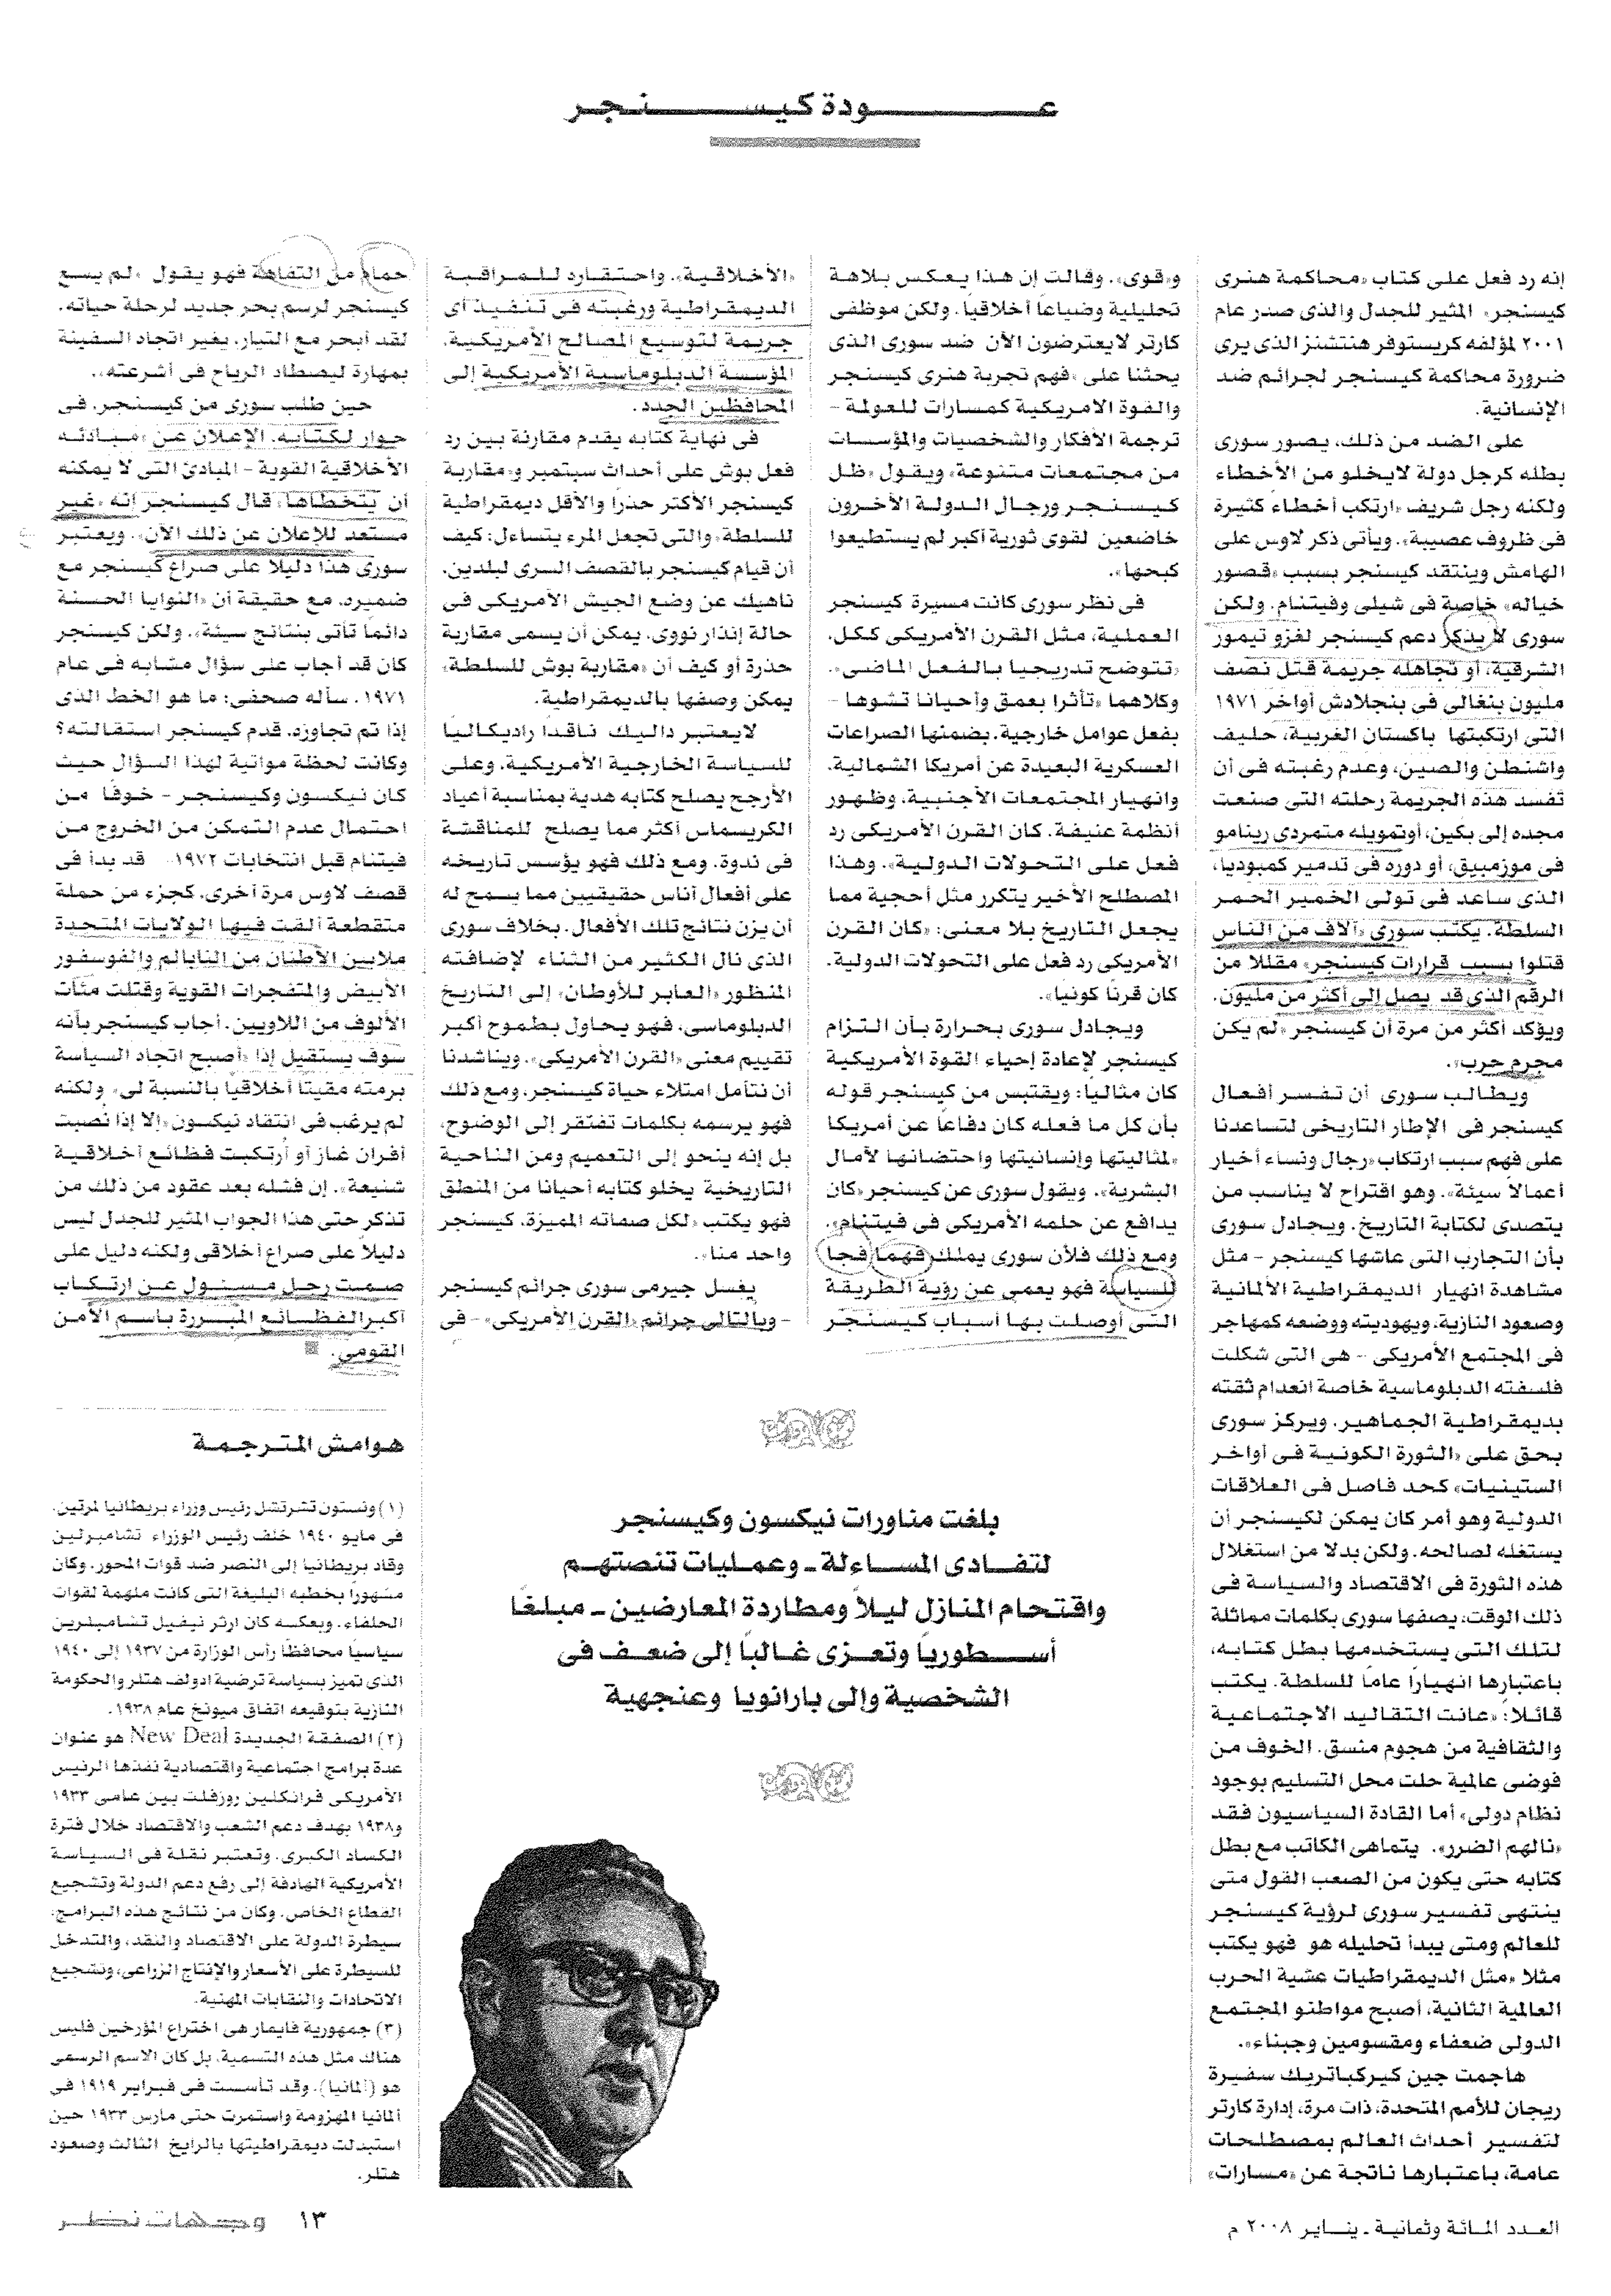 عودة كيسنجر
إنه رد فعل على كتاب «محاكمة هنرى
كيسنجر» المثير للجدل والذى صدر عام
٢٠٠١ لمؤلفه كريستوفر هتشنز الذى يرى
ضرورة محاكمة كيسنجر لجرائم ضد
الإنسانية.
على الضد من ذلك، يصور سورى
بطله كرجل دولة لايخلو من الأخطاء
ولكنه رجل شريف «ارتكب أخطاء كثيرة
فى ظروف عصيبة». ويأتى ذكر لاوس على
الهامش وينتقد كيسنجر بسبب «قصور
خياله» خاصة فى شيلى وفيتنام. ولكن
سورى لا يذكر دعم كيسنجر لغزو تيمور
الشرقية، أو تجاهله جريمة قتل نصف
مليون بنغالى فى بنجلادش أواخر ١٩٧١
التى ارتكبتها باكستان الغربية، حليف
واشنطن والصين، وعدم رغبته فى أن
تفسد هذه الجريمة رحلته التى صنعت
مجده إلى بكين، أوتمويله متمردى رينامو
فى موزمبيق، أو دوره فى تدمير كمبوديا،
الذى ساعد فى تولى الخمير الحمر
السلطة. يكتب سورى «آلاف من الناس
قتلوا بسبب قرارات كيسنجر» مقللا من
الرقم الذى قد يصل إلى أكثر من مليون.
ويؤكد أكثر من مرة أن كيسنجر «لم يكن
مجرم حرب».
ويطالب سورى أن تفسر أفعال
كيسنجر فى الإطار التاريخى لتساعدنا
على فهم سبب ارتكاب «رجال ونساء أخيار
أعمالاً سيئة». وهو اقتراح لا يناسب من
يتصدى لكتابة التاريخ. ويجادل سورى
بأن التجارب التى عاشها كيسنجر - مثل
مشاهدة انهيار الديمقراطية الألمانية
وصعود النازية، ويهوديته ووضعه كمهاجر
فى المجتمع الأمريكى - هى التى شكلت
فلسفته الدبلوماسية خاصة انعدام ثقته
بديمقراطية الجماهير. ويركز سورى
بحق على «الثورة الكونية فى أواخر
الستينيات» كحد فاصل فى العلاقات
الدولية وهو أمر كان يمكن لكيسنجر أن
يستغله لصالحه. ولكن بدلا من استغلال
هذه الثورة فى الاقتصاد والسياسة فى
ذلك الوقت، يصفها سورى بكلمات مماثلة
لتلك التى يستخدمها بطل كتابه،
باعتبارها انهيارًا عامًا للسلطة. يكتب
قائلا: «عانت التقاليد الاجتماعية
والثقافية من هجوم منسق. الخوف من
فوضى عالمية حلت محل التسليم بوجود
نظام دولى» أما القادة السياسيون فقد
«نالهم الضرر». يتماهى الكاتب مع بطل
كتابه حتى يكون من الصعب القول متى
ينتهى تفسير سورى لرؤية كيسنجر
للعالم ومتى يبدأ تحليله هو فهو يكتب
مثلا «مثل الديمقراطيات عشية الحرب
العالمية الثانية، أصبح مواطنو المجتمع
الدولى ضعفاء ومقسومين وجبناء».
هاجمت جين كيركباتريك سفيرة
ريجان للأمم المتحدة، ذات مرة، إدارة كارتر
لتفسير أحداث العالم بمصطلحات
عامة، باعتبارها ناتجة عن «مسارات»
و«قوى». وقالت إن هذا يعكس بلاهة
تحليلية وضياعاً أخلاقياً. ولكن موظفى
كارتر لايعترضون الآن ضد سورى الذى
يحثنا على «فهم تجربة هنرى كيسنجر
والقوة الامريكية كمسارات للعولمة -
ترجمة الأفكار والشخصيات والمؤسسات
من مجتمعات متنوعة» ويقول «ظل
كيسنجر ورجال الدولة الآخرون
خاضعين لقوى ثورية أكبر لم يستطيعوا
كبحها».
فى نظر سورى كانت مسيرة كيسنجر
العملية، مثل القرن الأمريكى ككل،
«تتوضح تدريجيا بالفعل الماضى».
وكلاهما «تأثرا بعمق وأحيانا تشوها -
بفعل عوامل خارجية. بضمنها الصراعات
العسكرية البعيدة عن أمريكا الشمالية.
وانهيار المجتمعات الأجنبية، وظهور
أنظمة عنيفة. كان القرن الأمريكى رد
فعل على التحولات الدولية». وهذا
المصطلح الأخير يتكرر مثل أحجية مما
يجعل التاريخ بلا معنى: «كان القرن
الأمريكى رد فعل على التحولات الدولية.
كان قرنًا كونيا».
ويجادل سورى بحرارة بأن التزام
كيسنجر لإعادة إحياء القوة الأمريكية
كان مثاليًا: ويقتبس من كيسنجر قوله
بأن كل ما فعله كان دفاعاً عن أمريكا
«لمثاليتها وإنسانيتها واحتضانها لآمال
البشرية». ويقول سورى عن كيسنجر «كان
يدافع عن حلمه الأمريكى فى فيتنام».
ومع ذلك فلأن سورى يملك فهما فجا
للسياسة فهو يعمى عن رؤية الطريقة
التى أوصلت بها أسباب كيسنجر
«الأخلاقية»، واحتقاره للمراقبة
الديمقراطية ورغبته فى تنفيذ أى
جريمة لتوسيع المصالح الأمريكية،
المؤسسة الدبلوماسية الأمريكية إلى
المحافظين الجدد.
فى نهاية كتابه يقدم مقارنة بين رد
فعل بوش على أحداث سبتمبر و«مقاربة
كيسنجر الأكثر حذرًا والأقل ديمقراطية
للسلطة» والتى تجعل المرء يتساءل: كيف
أن قيام كيسنجر بالقصف السرى لبلدين.
ناهيك عن وضع الجيش الأمريكى فى
حالة إنذار نووى، يمكن أن يسمى مقاربة
حذرة أو كيف أن «مقاربة بوش للسلطة»
يمكن وصفها بالديمقراطية.
لايعتبر داليك ناقدًا راديكاليًا
للسياسة الخارجية الأمريكية، وعلى
الأرجح يصلح كتابه هدية بمناسبة أعياد
الكريسماس أكثر مما يصلح للمناقشة
فى ندوة. ومع ذلك فهو يؤسس تاريخه
على أفعال أناس حقيقيين مما يسمح له
أن يزن نتائج تلك الأفعال. بخلاف سورى
الذى نال الكثير من الثناء لإضافته
المنظور «العابر للأوطان» إلى التاريخ
الدبلوماسى، فهو يحاول بطموح أكبر
تقييم معنى «القرن الأمريكى». ويناشدنا
أن نتأمل امتلاء حياة كيسنجر، ومع ذلك
فهو يرسمه بكلمات تفتقر إلى الوضوح،
بل إنه ينحو إلى التعميم ومن الناحية
التاريخية يخلو كتابه أحيانا من المنطق
فهو يكتب «لكل صفاته المميزة، كيسنجر
واحد منا».
يغسل جيرمى سورى جرائم كيسنجر
- وبالتالى جرائم «القرن الأمريكى» - فى
حمام من التفاهة فهو يقول «لم يسع
كيسنجر لرسم بحر جديد لرحلة حياته.
لقد أبحر مع التيار، يغير اتجاه السفينة
بمهارة ليصطاد الرياح فى أشرعته».
حين طلب سورى من كيسنجر، فى
حوار لكتابه، الإعلان عن «مبادئه
الأخلاقية القوية - المبادئ التى لا يمكنه
أن يتخطاها» قال كيسنجر إنه «غير
مستعد للإعلان عن ذلك الآن». ويعتبر
سورى هذا دليلا على صراع كيسنجر مع
ضميره، مع حقيقة أن «النوايا الحسنة
دائماً تأتى بنتائج سيئة». ولكن كيسنجر
كان قد أجاب على سؤال مشابه فى عام
١٩٧١. سأله صحفى: ما هو الخط الذى
إذا تم تجاوزه، قدم كيسنجر استقالته؟
وكانت لحظة مواتية لهذا السؤال حيث
كان نيكسون وكيسنجر - خوفًا من
احتمال عدم التمكن من الخروج من
فيتنام قبل انتخابات ١٩٧٢- قد بدأ فى
قصف لاوس مرة أخرى، كجزء من حملة
متقطعة ألقت فيها الولايات المتحدة
ملايين الأطنان من النابالم والفوسفور
الأبيض والمتفجرات القوية وقتلت مئات
الألوف من اللاويين. أجاب كيسنجر بأنه
سوف يستقيل إذا «أصبح اتجاه السياسة
برمته مقيتًا أخلاقيًا بالنسبة لى» ولكنه
لم يرغب فى انتقاد نيكسون «إلا إذا نُصبت
أفران غاز أو أُرتكبت فظائع أخلاقية
شنيعة». إن فشله بعد عقود من ذلك من
تذكر حتى هذا الجواب المثير للجدل ليس
دليلاً على صراع أخلاقى ولكنه دليل على
صمت رجل مسئول عن ارتكاب
أكبر الفظائع المبررة باسم الأمن
القومى.
هوامش المترجمة
(١) ونستون تشرتشل رئيس وزراء بريطانيا لمرتين.
فى مايو ١٩٤٠ خلف رئيس الوزراء تشامبرلين
وقاد بريطانيا إلى النصر ضد قوات المحور. وكان
مشهوراً بخطبه البليغة التى كانت ملهمة لقوات
الحلفاء. وبعكسه كان ارثر نيفيل تشامبلرين
سياسيًا محافظًا رأس الوزارة من ١٩٣٧ إلى ١٩٤٠
الذى تميز بسياسة ترضية ادولف هتلر والحكومة
النازية بتوقيعه اتفاق ميونخ عام ١٩٣٨.
(٢) الصفقة الجديدة New Deal هو عنوان
عدة برامج اجتماعية واقتصادية نفذها الرئيس
الأمريكى فرانكلين روزفلت بين عامى ١٩٣٣
و١٩٣٨ بهدف دعم الشعب والاقتصاد خلال فترة
الكساد الكبرى. وتعتبر نقلة فى السياسة
الأمريكية الهادفة إلى رفع دعم الدولة وتشجيع
القطاع الخاص. وكان من نتائج هذه البرامج،
سيطرة الدولة على الاقتصاد والنقد، والتدخل
للسيطرة على الأسعار والإنتاج الزراعى، وتشجيع
الاتحادات والنقابات المهنية.
(٣) جمهورية فايمار هى اختراع المؤرخين فليس
هناك مثل هذه التسمية. بل كان الاسم الرسمى
هو (ألمانيا). وقد تأسست فى فبراير ١٩١٩ فى
ألمانيا المهزومة واستمرت حتى مارس ١٩٣٣ حين
استبدلت ديمقراطيتها بالرايخ الثالث وصعود
هتلر.
بلغت مناورات نيكسون وكيسنجر
لتفادى المساءلة - وعمليات تنصتهم
واقتحام المنازل ليلاً ومطاردة المعارضين - مبلغًا
أسطوريا وتعزى غالبًا إلى ضعف فى
الشخصية وإلى بارانويا وعنجهية
العدد المائة وثمانية - يناير ٢٠٠٨ م
١٣ وجهات نظر